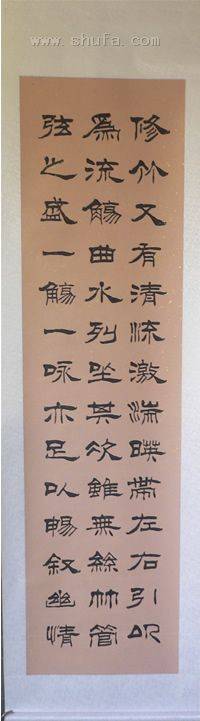 www.shufa.com
修竹又有清流激湍暎帶左右引以
為流觴曲水列坐其次雖無絲竹管
弦之盛一觴一咏亦足以暢叙幽情